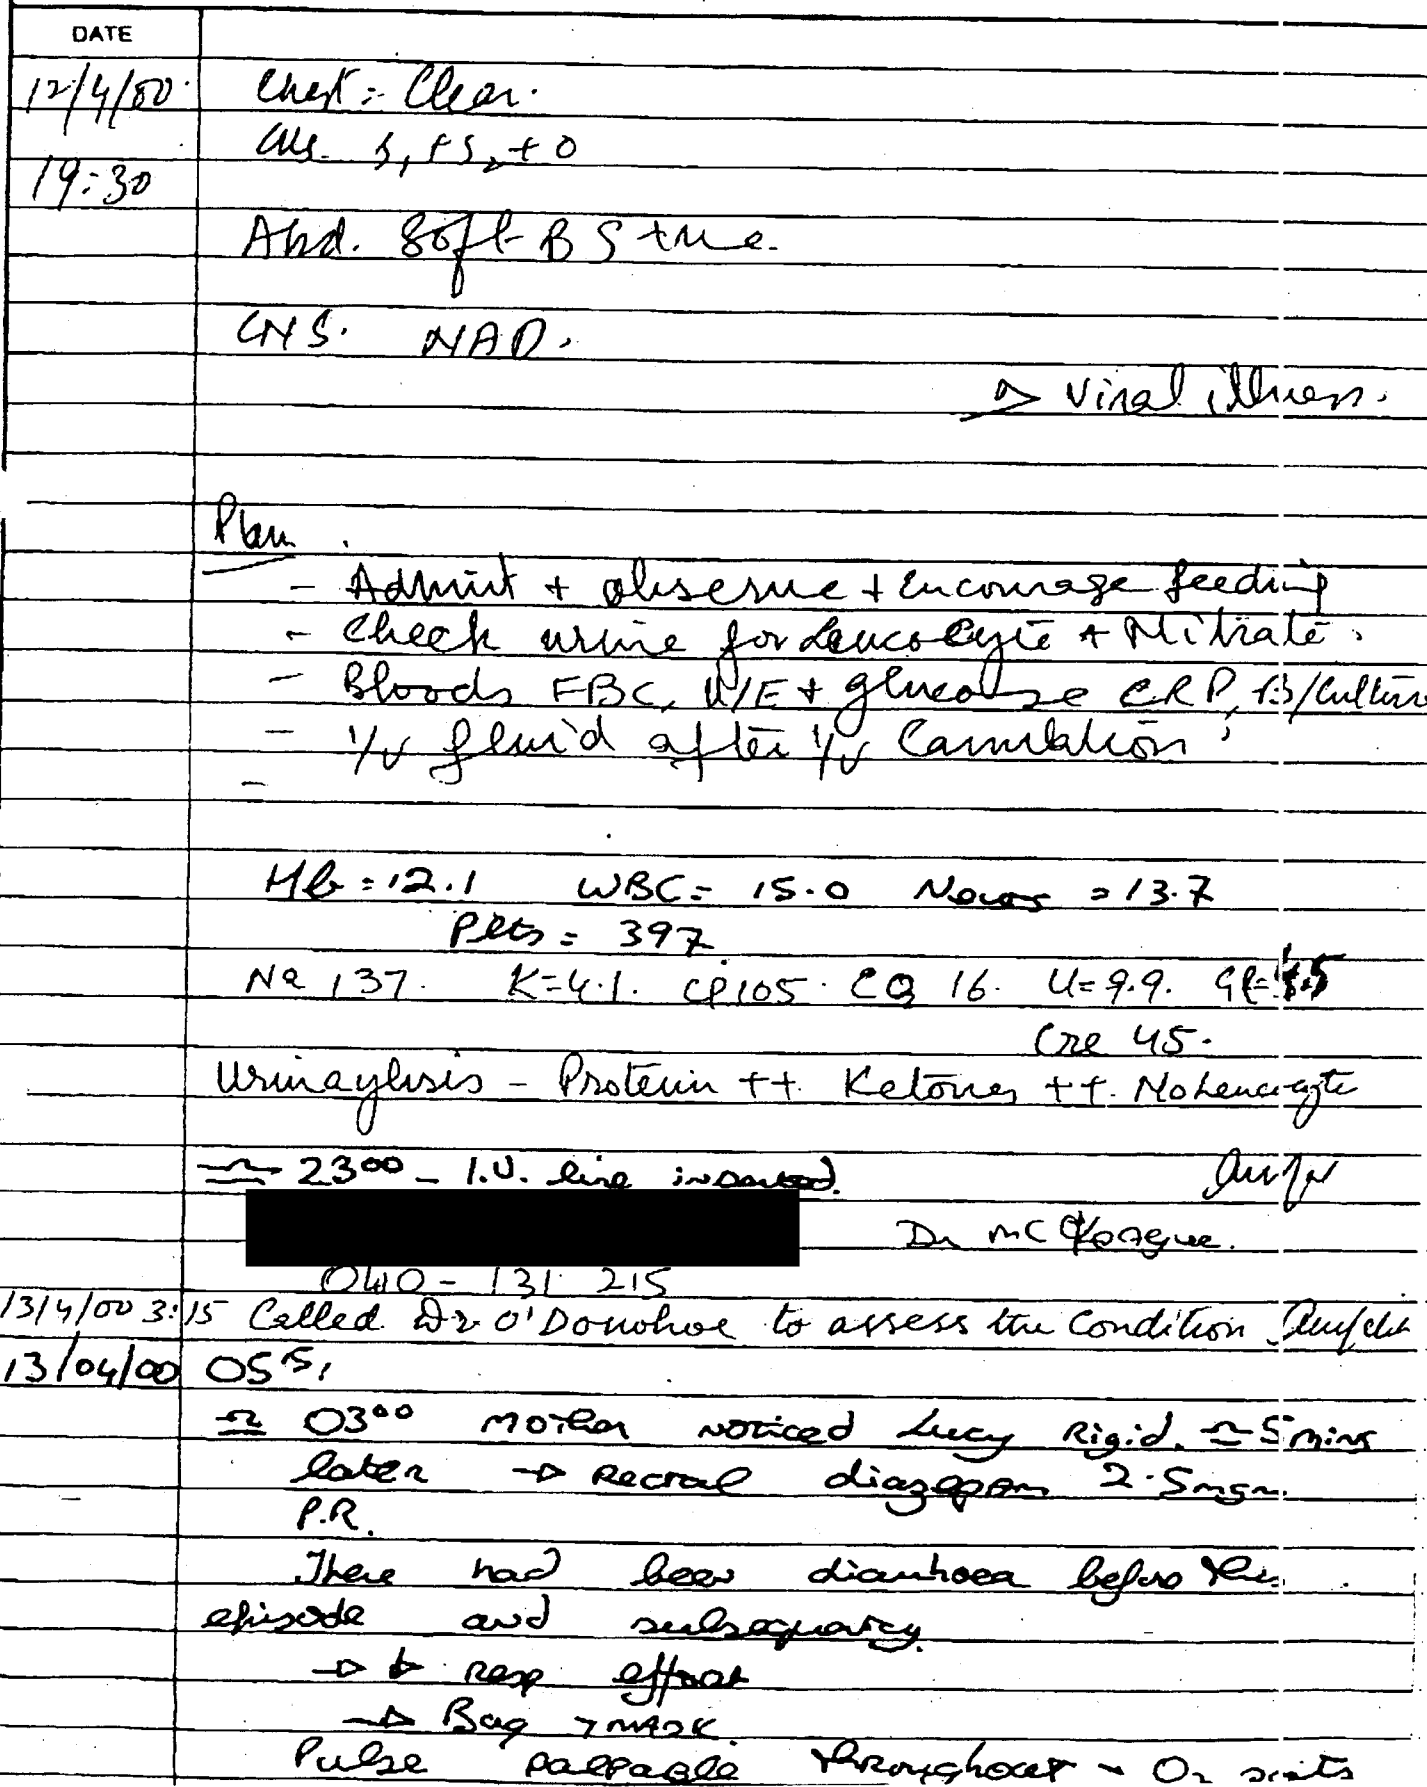 DATE
12/4/00. Chest :- Clear.
CVS. S1 + S2 + 0
19:30
Abd. Soft BS +ve.
CNS. NAD.
→ Viral illness.
Plan
- Admit + observe + Encourage feeding
- Check urine for Leucocyte + Nitrate.
- Bloods FBC, U/E + glucose CRP, B/Culture
- I/V fluid after I/V Cannulation
-
Hb = 12.1 WBC = 15.0 = 13.7
Plts = 397
Na 137. K = 4.1. Cl 105. CO2 16. U = 9.9. Gl =
Cre 45.
Urinaylisis - Protein ++ Ketones ++. No Leucocyte
≏ 23oo - I.V. line inserted.
Dr
040 - 131 215
13/4/00 3:15 Called Dr O'Donohoe to assess the Condition
13/04/00 05
≏ 03oo Mother noticed Lucy Rigid. ≏ 5 mins
later → Rectal diazepam 2.5mgm.
P.R.
There had been diarrhoea before this
episode and subsequently.
→ ↓ resp effort
→ Bag + mask
Pulse palpable throughout - O2 sats